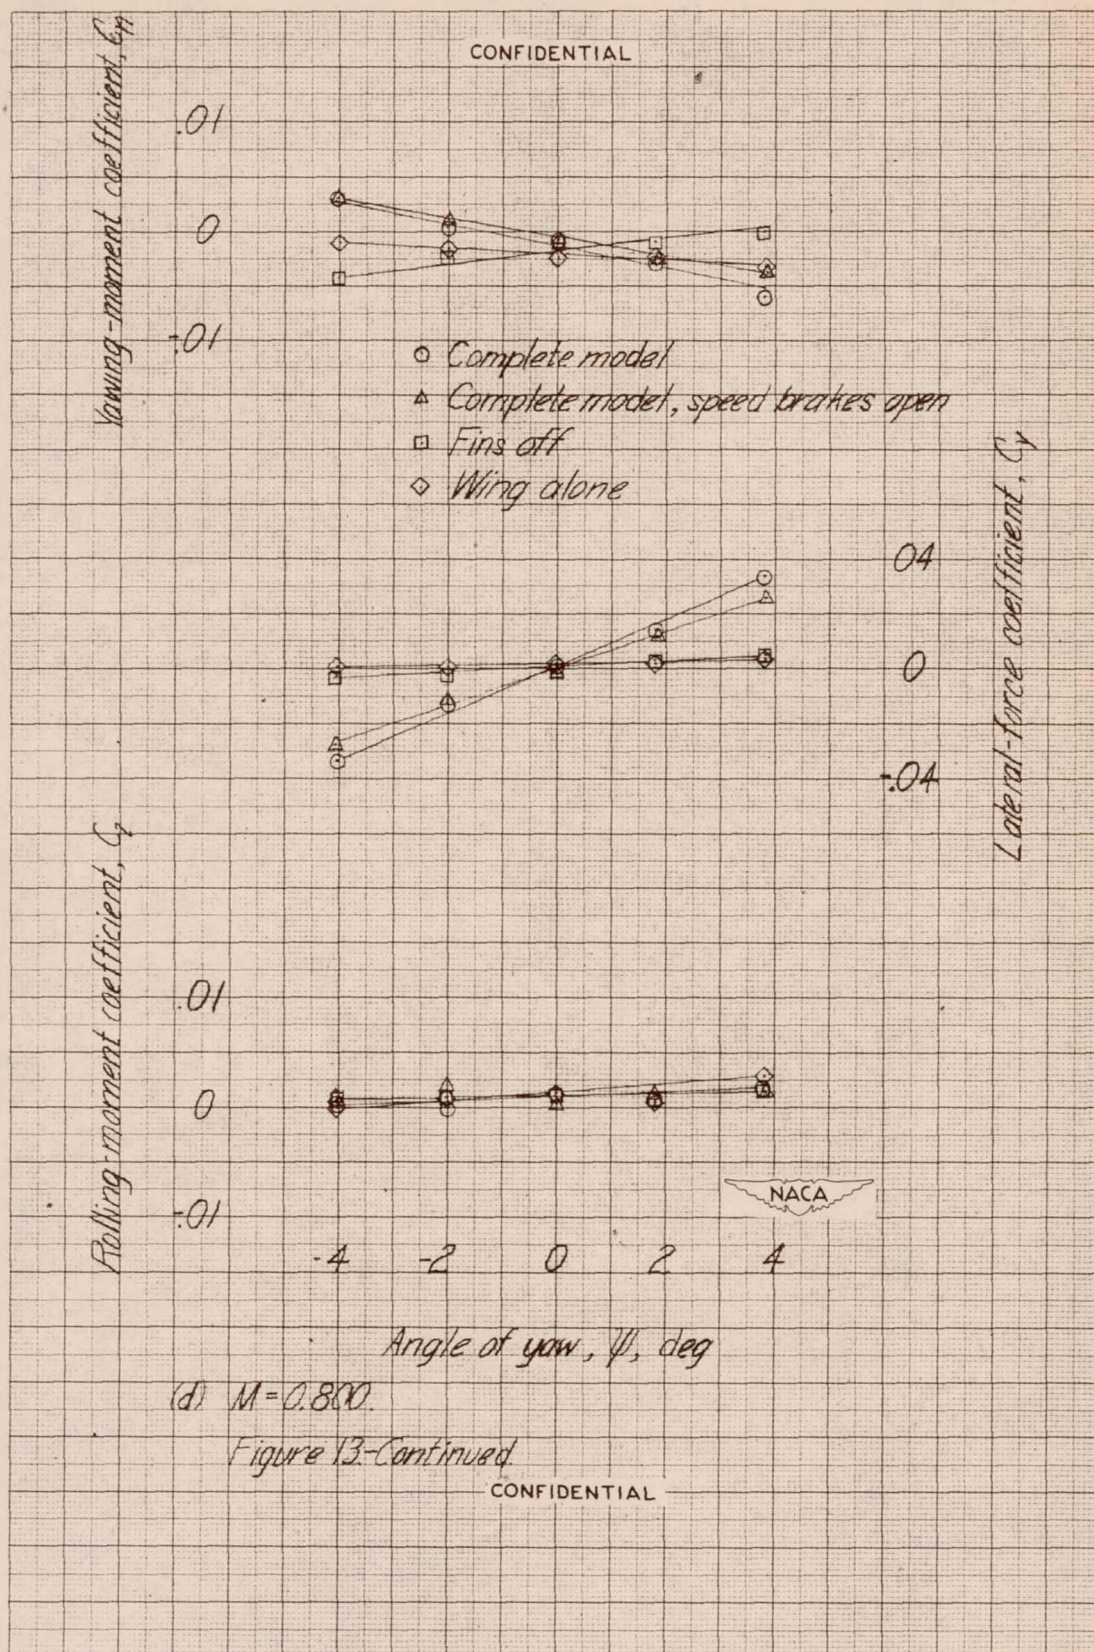 CONFIDENTIAL
Yawing-moment coefficient, Cn
.01
0
-.01
Complete model
Complete model, speed brakes open
Fins off
Wing alone
Lateral-force coefficient, Cy
04
0
-.04
Rolling-moment coefficient, Cl
.01
0
-.01
NACA
-4 -2 0 2 4
Angle of yaw, ψ, deg
(d) M=0.800.
Figure 13.-Continued.
CONFIDENTIAL